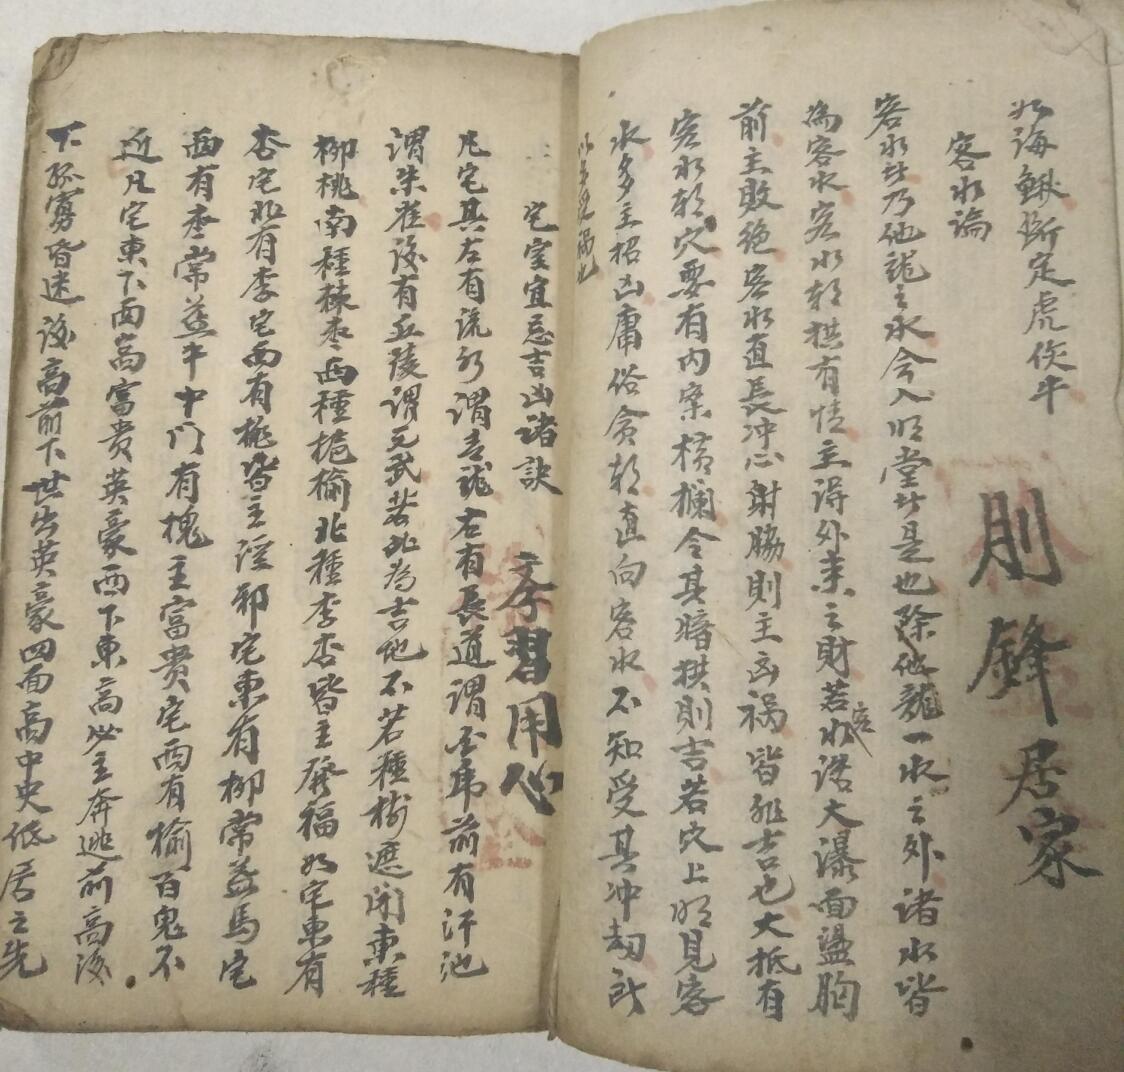 如海鰍斷定虎俟牛
則鋒居家
客水論
客水者乃他龍之水今入明堂者是也除他龍一水之外諸水皆
為客水客水朝拱有情主得外来之財若客水浩大瀑面盪胸
前主敗絶客水直長冲心射脇則主凶禍皆非吉也大抵有
客水朝穴要有内案横攔令其暗拱則吉若穴上明見客
水多主招凶庸俗貪朝直向客水不知受其冲刼所
以多受禍也
宅室宜忌吉凶諸訣
李習用心
凡宅其左有流水謂青龍右有長道謂白虎前有汙池
謂朱雀後有丘陵謂元武若此為吉也不若種樹遮閉東種
柳桃南種棘枣西種梔榆北種李杏皆主發福如宅東有
杏宅北有李宅西有桃皆主淫邪宅東有柳常益馬宅
西有枣常益牛中门有槐主富貴宅西有榆百鬼不
近凡宅東下西高富貴英豪西下東高必主奔逃前高後
下孤寡昏迷後高前下世出英豪四面高中央低居之先